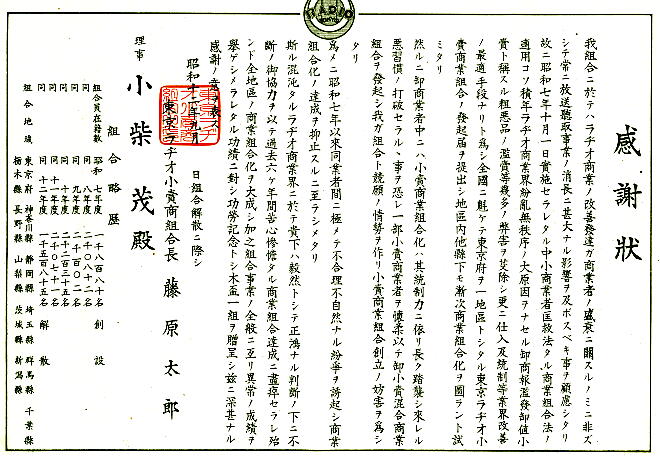 感謝狀
我組合ニ於テハラヂオ商業ノ改善發達ガ商業者ノ盛衰ニ關スルノミニ非ズ
シテ常ニ放送聽取事業ノ消長ニ甚大ナル影響ヲ及ボスベキ事ヲ顧慮シタリ
故ニ昭和七年十月一日實施セラレタル中小商業者匡救法タル商業組合法ノ
適用コソ積年ラヂオ商業界紛亂無秩序ノ大原因ヲナセル卸商報濫發卸値小
賣ト稱スル粗悪品ノ濫賣等幾多ノ弊害ヲ芟除シ更ニ仕入及統制等業界改善
ノ最適手段ナリト爲シ全國ニ魁ケテ東京府ヲ一地區トシタル東京ラヂオ小
賣商業組合ノ發起屆ヲ提出シ地區内他縣下モ漸次商業組合化ヲ圖ラント試
ミタリ
然ルニ卸商業者中ニハ小賣商業組合化ハ其統制力ニ依リ長ク踏襲シ來レル
悪習慣ノ打破セラルヽ事ヲ恐レ一部小賣商業者ヲ懷柔以テ卸小賣混合商業
組合ヲ發起シ我ガ組合ト競願ノ情勢ヲ作リ小賣商業組合創立ノ妨害ヲ爲シ
タリ
爲メニ昭和七年以來同業者間ニ極メテ不合理不自然ナル紛爭ヲ誘起シ商業
組合化ノ達成ヲ抑止スルニ至ラシメタリ
斯ル混沌タルラヂオ商業界ニ於テ貴下ハ毅然トシテ正鴻ナル判斷ノ下ニ不
斷ノ御協力ヲ以テ過去六ヶ年間苦心慘憺タル商業組合達成ニ盡瘁セラレ殆
ンド全地區ノ商業組合化ヲ大成シ加之組合事業ノ全般ニ亙リ異常ノ成績ヲ
擧ゲシメラレタル功績ニ對シ功勞記念トシ木盃一組ヲ贈呈シ茲ニ深甚ナル
感謝ノ意ヲ表ス
昭和十二年 月 日組合解散ニ際シ
東京ラヂオ小賣商組合長 藤原太郎
理事 小柴茂殿
組合略歴
組合員在籍數 昭和七年度 一千八百八十名 創設
同 八年度 二千〇八十二名
同 九年度 二千百〇二名
同 十年度 二千二百三十五名
同 十一年度 二千〇七十一名
同 十二年度 一千五百八十五名 解散
組合地域 東京府 神奈川縣 靜岡縣 埼玉縣 群馬縣 千葉縣
栃木縣 長野縣 山梨縣 茨城縣 新潟縣